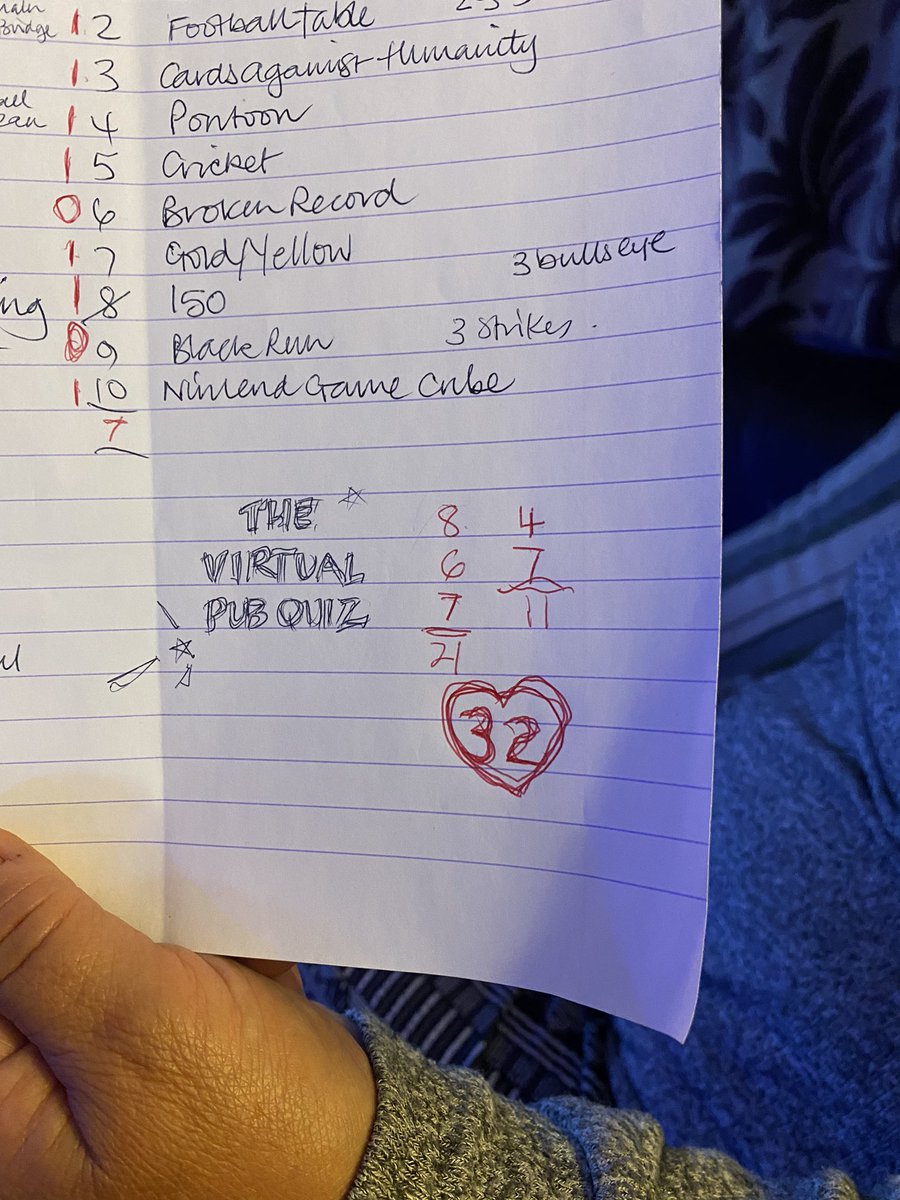 Bridge 1. 2 Football table
1.3 Cards against Humanity
1 4 Pontoon
1 5 Cricket
0 6 Broken Record
1 7 Gold/Yellow
3 bullseye
ing 1 8 150
0 9 Black Run 3 strikes.
1 10 Nintend Game Cube
7
THE 8 4
VIRTUAL 6 7
PUB QUIZ 7 11
21
32